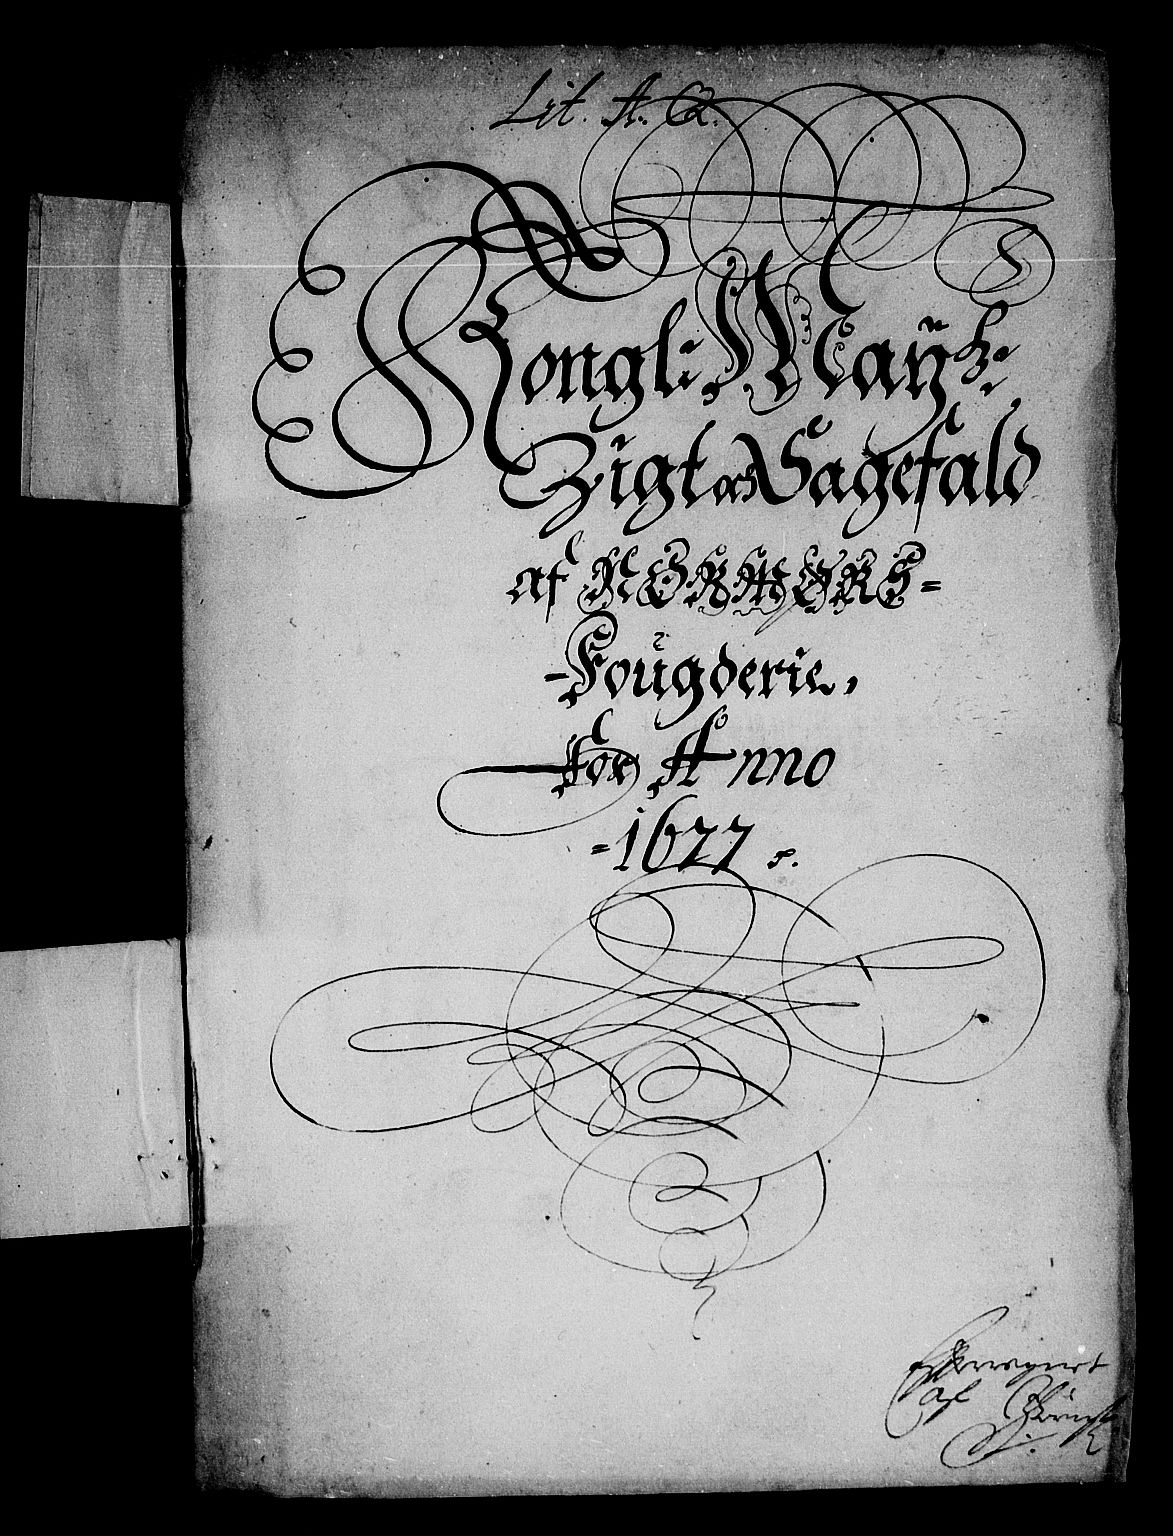 Lit. A. Q.
Kongl: Maÿtz:
Zigt och Sagefald
af NORMØRS=
-Foŭgderie,
For Anno
=1677 ⁊.
af